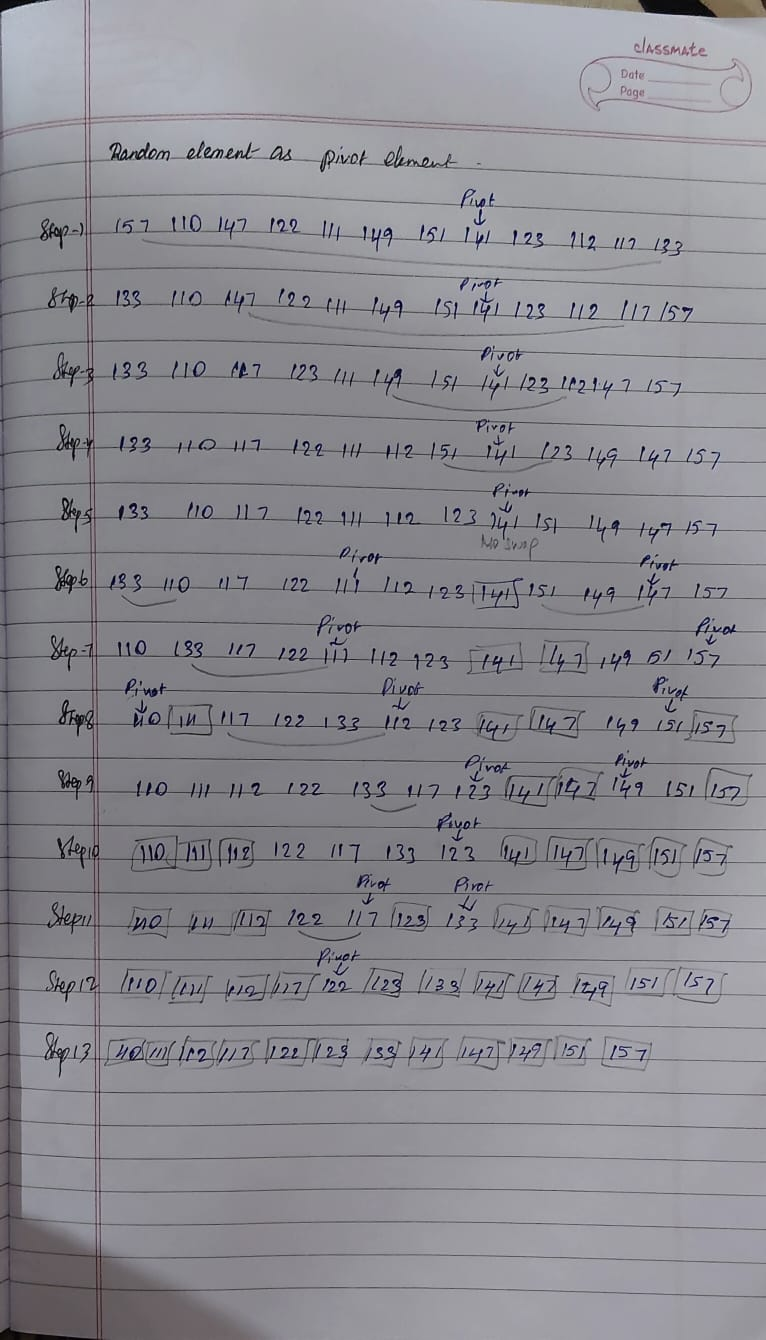 classmate
Date
Page
Random element as pivot element.
Pivot
Step-1 157 110 147 122 111 149 151 141 123 112 117 133
Pivot
Step-2 133 110 147 122 111 149 151 141 123 112 117 157
Pivot
Step-3 133 110 117 123 111 149 151 141 123 112 147 157
Pivot
Step-4 133 110 117 122 111 112 151 141 123 149 147 157
Pivot
Step5 133 110 117 122 111 112 123 141 151 149 147 157
No swap
Pivot Pivot
Step6 133 110 117 122 111 112 123 141 151 149 147 157
Pivot Pivot
Step-7 110 133 117 122 111 112 123 141 147 149 151 157
Pivot Pivot Pivot
Step8 110 111 117 122 133 112 123 141 147 149 151 157
Pivot Pivot
Step9 110 111 112 122 133 117 123 141 147 149 151 157
Pivot
Step10 110 111 112 122 117 133 123 141 147 149 151 157
Pivot Pivot
Step11 110 111 112 122 117 123 133 141 147 149 151 157
Pivot
Step12 110 111 112 117 122 123 133 141 147 149 151 157
Step13 110 111 112 117 122 123 133 141 147 149 151 157